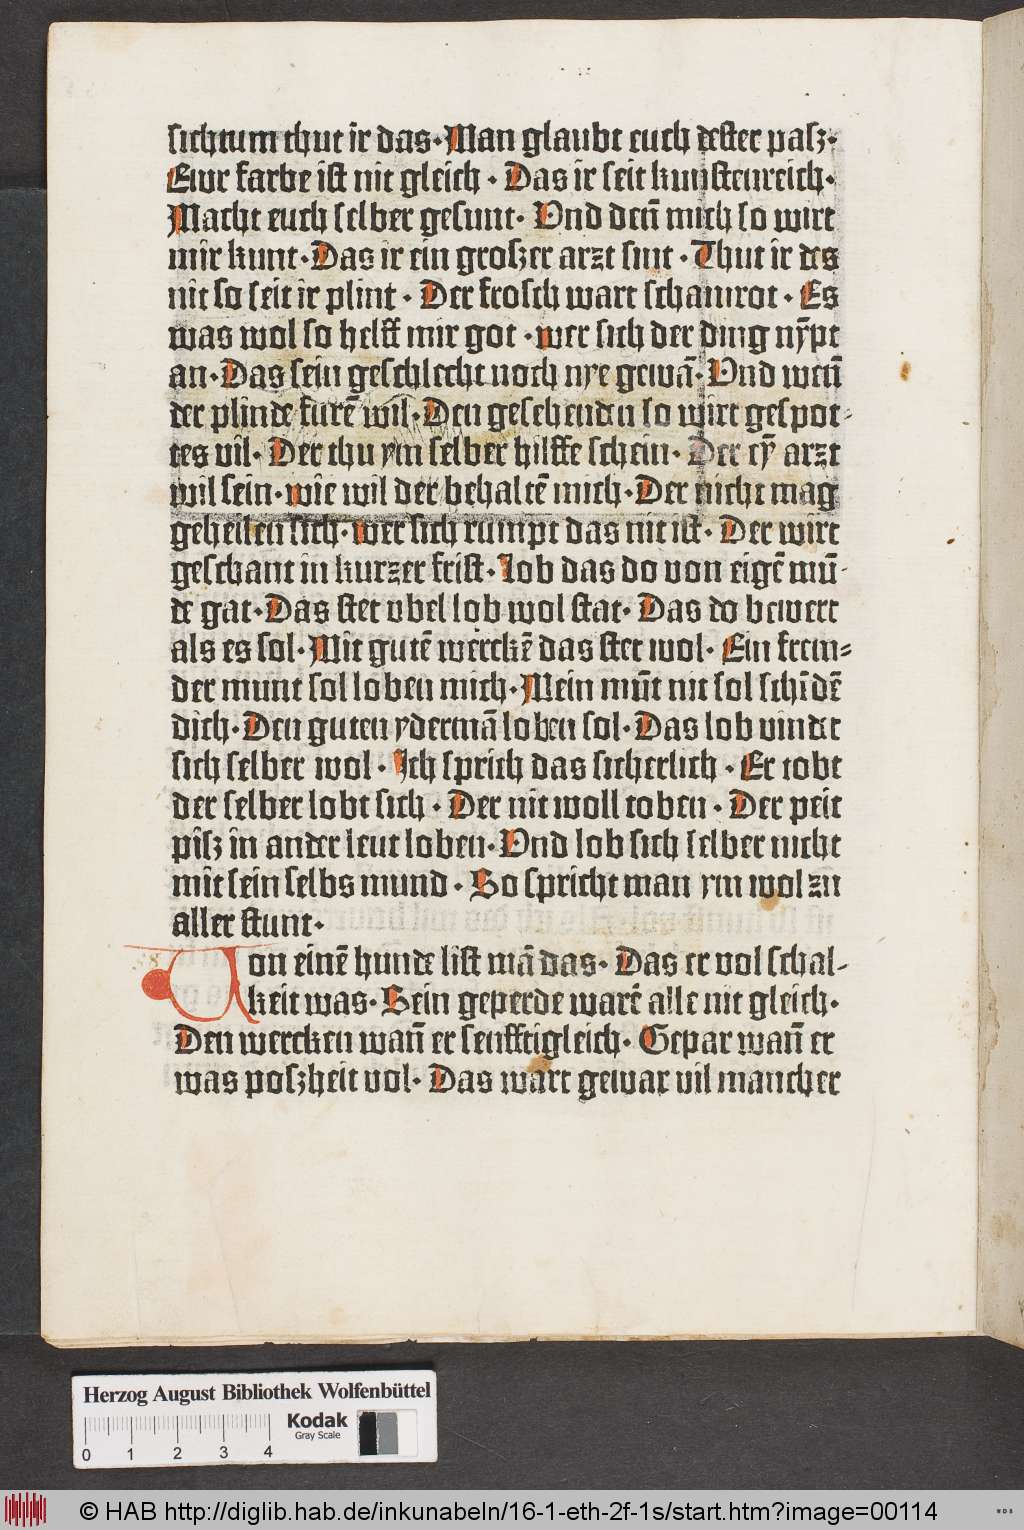 sichtum thut ir das· Man glaubt euch dester pasz·
Ewr farbe ist nit gleich · Das ir seit kunstenreich·
Macht euch selber gesunt· Vnd deñ mich so wirt
mir kunt·Das ir ein groszer arzt sint · Thut ir des
nit so seit ir plint · Der frosch wart schamrot · Es
was wol so helff mir got ·wer sich der ding nȳpt
an·Das sein geschlecht noch nye gewā·Vnd weñ
der plinde furē wil·Den gesehenden so wirt gespot-
tes vil· Der thu ym selber hilffe schein· Der eȳ arzt
wil sein·wie wil der behaltē mich·Der nicht mag
geheilen sich·wer sich rumpt das nit ist· Der wirt
geschant in kurzer frist·Lob das do von eigē mū-
de gat·Das stet vbel lob wol stat· Das do bewert
als es sol·Mit gutē werckē das stet wol· Ein frem=
der munt sol loben mich·Mein mūt nit sol schīdē
dich·Den guten ydermā loben sol·Das lob vindet
sich selber wol · Ich sprich das sicherlich · Er tobt
der selber lobt sich · Der nit woll toben · Der peit
pisz in ander leut loben·Vnd lob sich selber nicht
mit sein selbs mund · So spricht man ym wol zu
aller stunt·
Von einē hunde list mā das· Das er vol schal-
keit was·Sein geperde warē alle nit gleich·
Den wercken wañ er senfftigleich· Gepar wañ er
was poszheit vol· Das wart gewar vil mancher
Herzog August Bibliothek Wolfenbüttel
Kodak
Gray Scale
0 1 2 3 4
© HAB http://diglib.hab.de/inkunabeln/16-1-eth-2f-1s/start.htm?image=00114